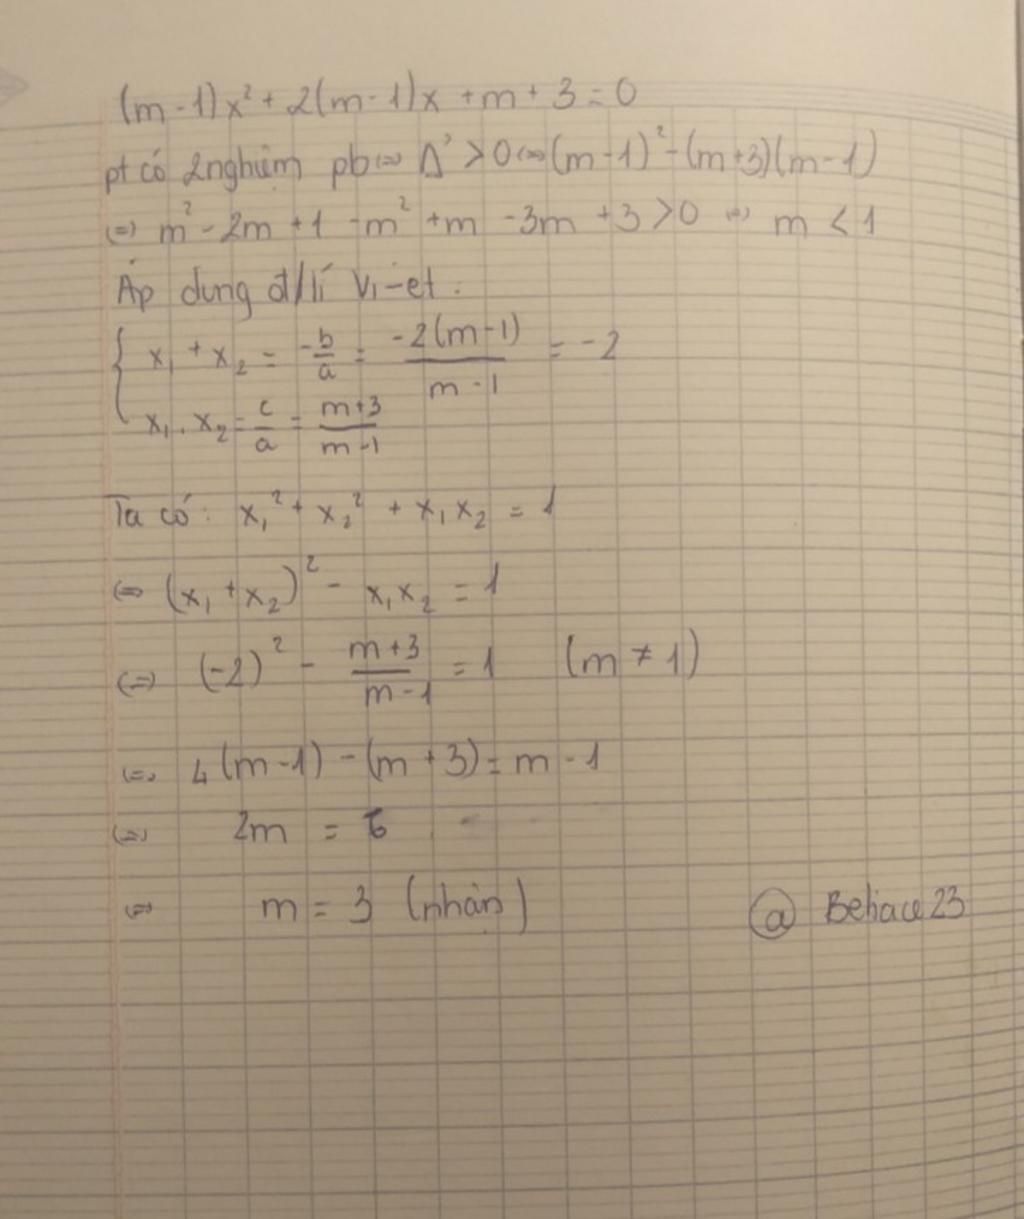 (m-1)x² + 2(m-1)x + m + 3 = 0
pt có 2 nghiệm pb ⇔ Δ' > 0 ⇔ (m-1)² - (m+3)(m-1)
⇔ m² - 2m + 1 - m² + m - 3m + 3 > 0 ⇔ m < 1
Áp dụng đ/lí Vi-et :
{ x₁ + x₂ = -b/a = -2(m-1)/(m-1) = -2
x₁ . x₂ = c/a = (m+3)/(m-1)
Ta có: x₁² + x₂² + x₁x₂ = 1
⇔ (x₁ + x₂)² - x₁x₂ = 1
⇔ (-2)² - (m+3)/(m-1) = 1 (m ≠ 1)
⇔ 4(m-1) - (m+3) = m - 1
⇔ 2m = 6
⇔ m = 3 (nhận)
@